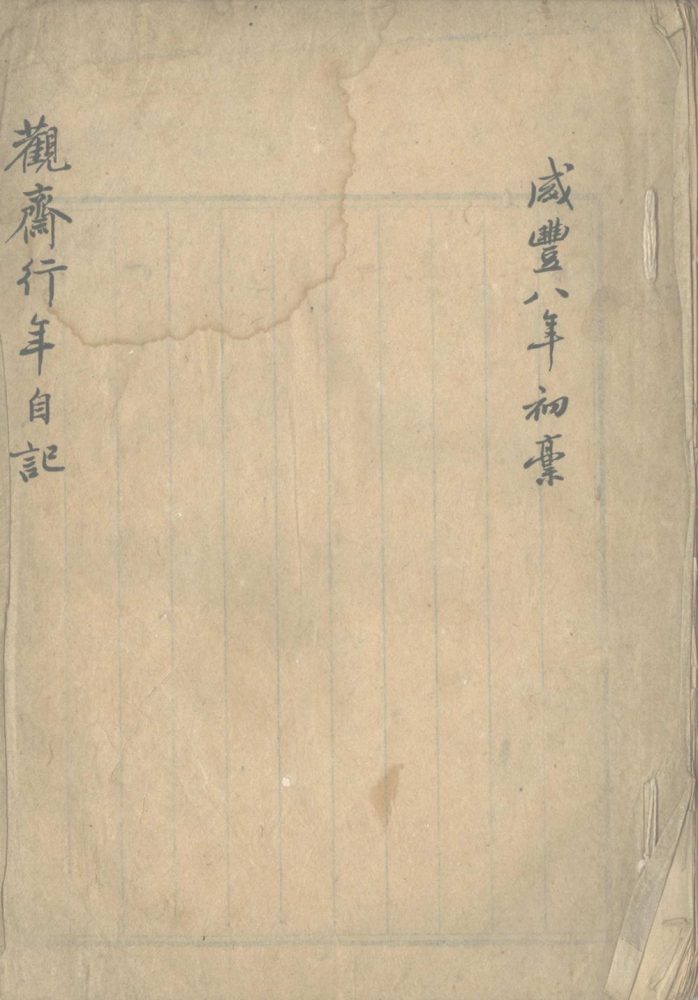 咸豐八年初稾
觀齋行年自記